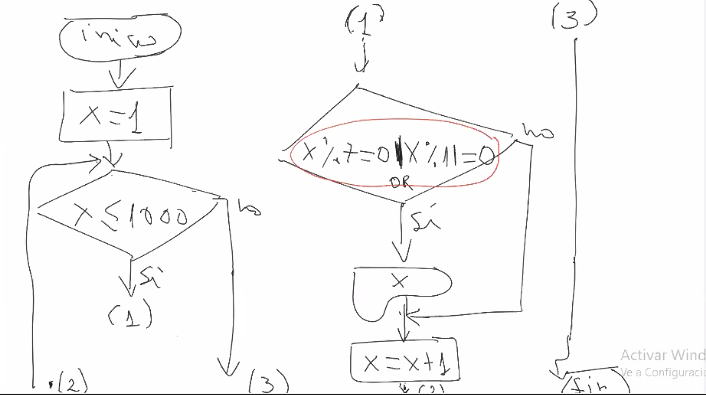 inicio
x=1
x ≤ 1000
no
si
(1)
(2)
(3)
(1)
x%7=0 | x%11=0
OR
no
si
x
x=x+1
(2)
(3)
fin
Activar Wind
Ve a Configuraci